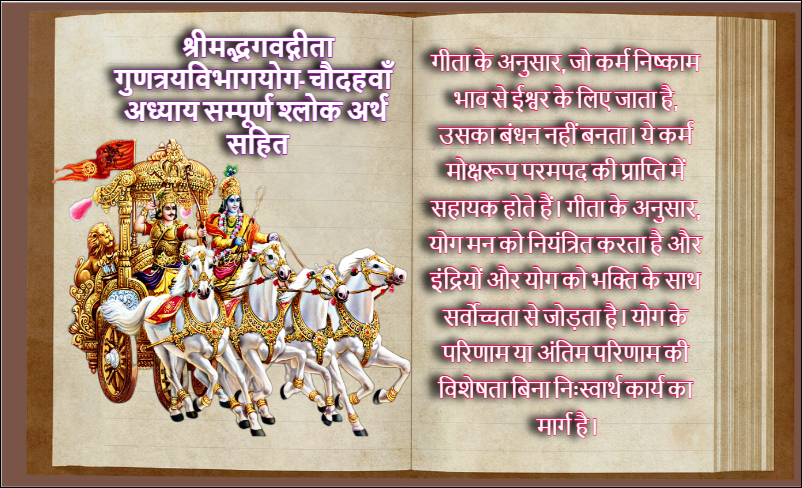 श्रीमद्भगवद्गीता
गुणत्रयविभागयोग- चौदहवाँ
अध्याय सम्पूर्ण श्लोक अर्थ
सहित
गीता के अनुसार, जो कर्म निष्काम
भाव से ईश्वर के लिए जाता है,
उसका बंधन नहीं बनता। ये कर्म
मोक्षरूप परमपद की प्राप्ति में
सहायक होते हैं। गीता के अनुसार,
योग मन को नियंत्रित करता है और
इंद्रियों और योग को भक्ति के साथ
सर्वोच्चता से जोड़ता है। योग के
परिणाम या अंतिम परिणाम की
विशेषता बिना निःस्वार्थ कार्य का
मार्ग है।